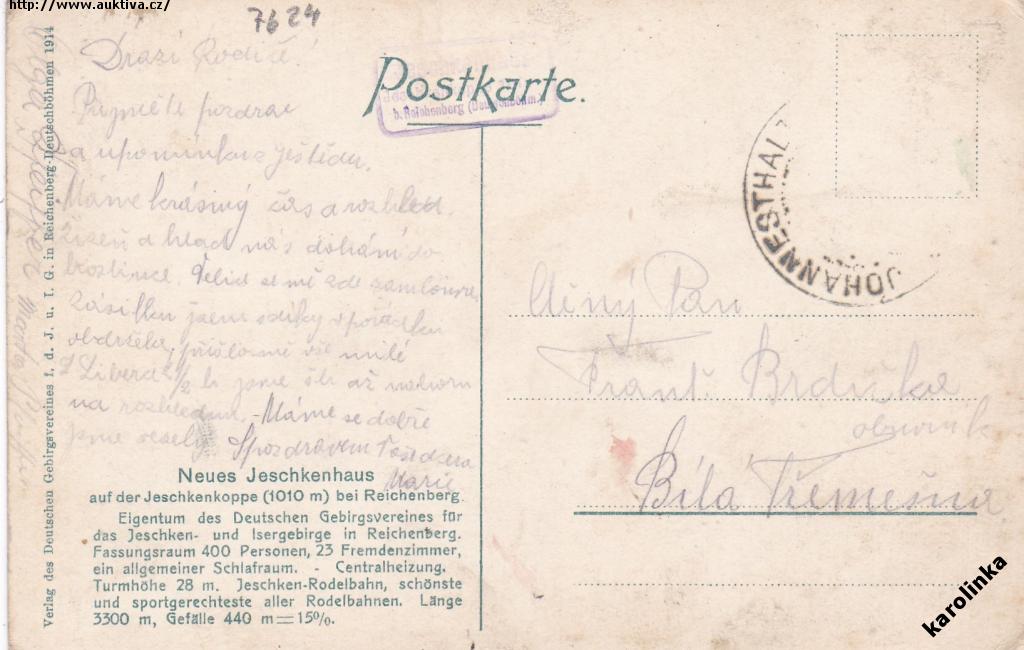 http://www.auktiva.cz/
7624
Drazí Rodiče!
Přijměte pozdrav
a upomínku z Ještědu.
Máme krásný čas a rozhled.
Žízeň a hlad nás dohání do
hostince. se mě zde
Zásilku jsem díky v pořádku
obdržela, milé
Z Liberce 1/2 h jsme šli až nahoru
na rozhlednu. - Máme se dobře
jsme veselý. S pozdravem
Marie
Postkarte.
b. Reichenberg (Deutschböhm.)
JOHANNESTHAL
Ctěný Pan
Frant. Brdička
obuvník
Bílá Třemešná
Neues Jeschkenhaus
auf der Jeschkenkoppe (1010 m) bei Reichenberg.
Eigentum des Deutschen Gebirgsvereines für
das Jeschken- und Isergebirge in Reichenberg.
Fassungsraum 400 Personen, 23 Fremdenzimmer,
ein allgemeiner Schlafraum. - Centralheizung.
Turmhöhe 28 m. Jeschken-Rodelbahn, schönste
und sportgerechteste aller Rodelbahnen. Länge
3300 m, Gefälle 440 m = 15%.
Verlag des Deutschen Gebirgsvereines f. d. J. u. I. G. in Reichenberg-Deutschböhmen 1914
karolinka